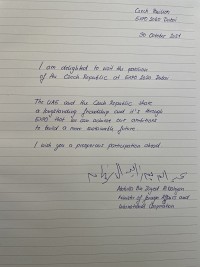 Czech Pavilion
EXPO 2020 Dubai
30 October 2021
I am delighted to visit the pavilion
of the Czech Republic at Expo 2020 Dubai
The UAE and the Czech Republic share
a longstanding friendship and it's through
EXPO that we can achieve our ambitions
to build a more sustainable future
I wish you a prosperous participation ahead
Abdulla Bin Zayed Al Nahyan
Minister of Foreign Affairs and
International Cooperation